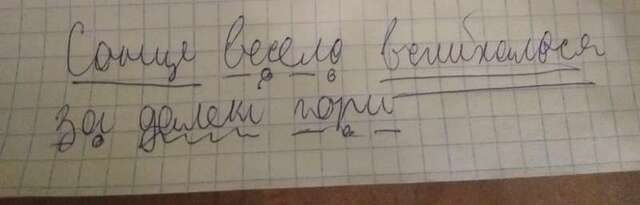 Сонце весело всміхалося
за далекі гори